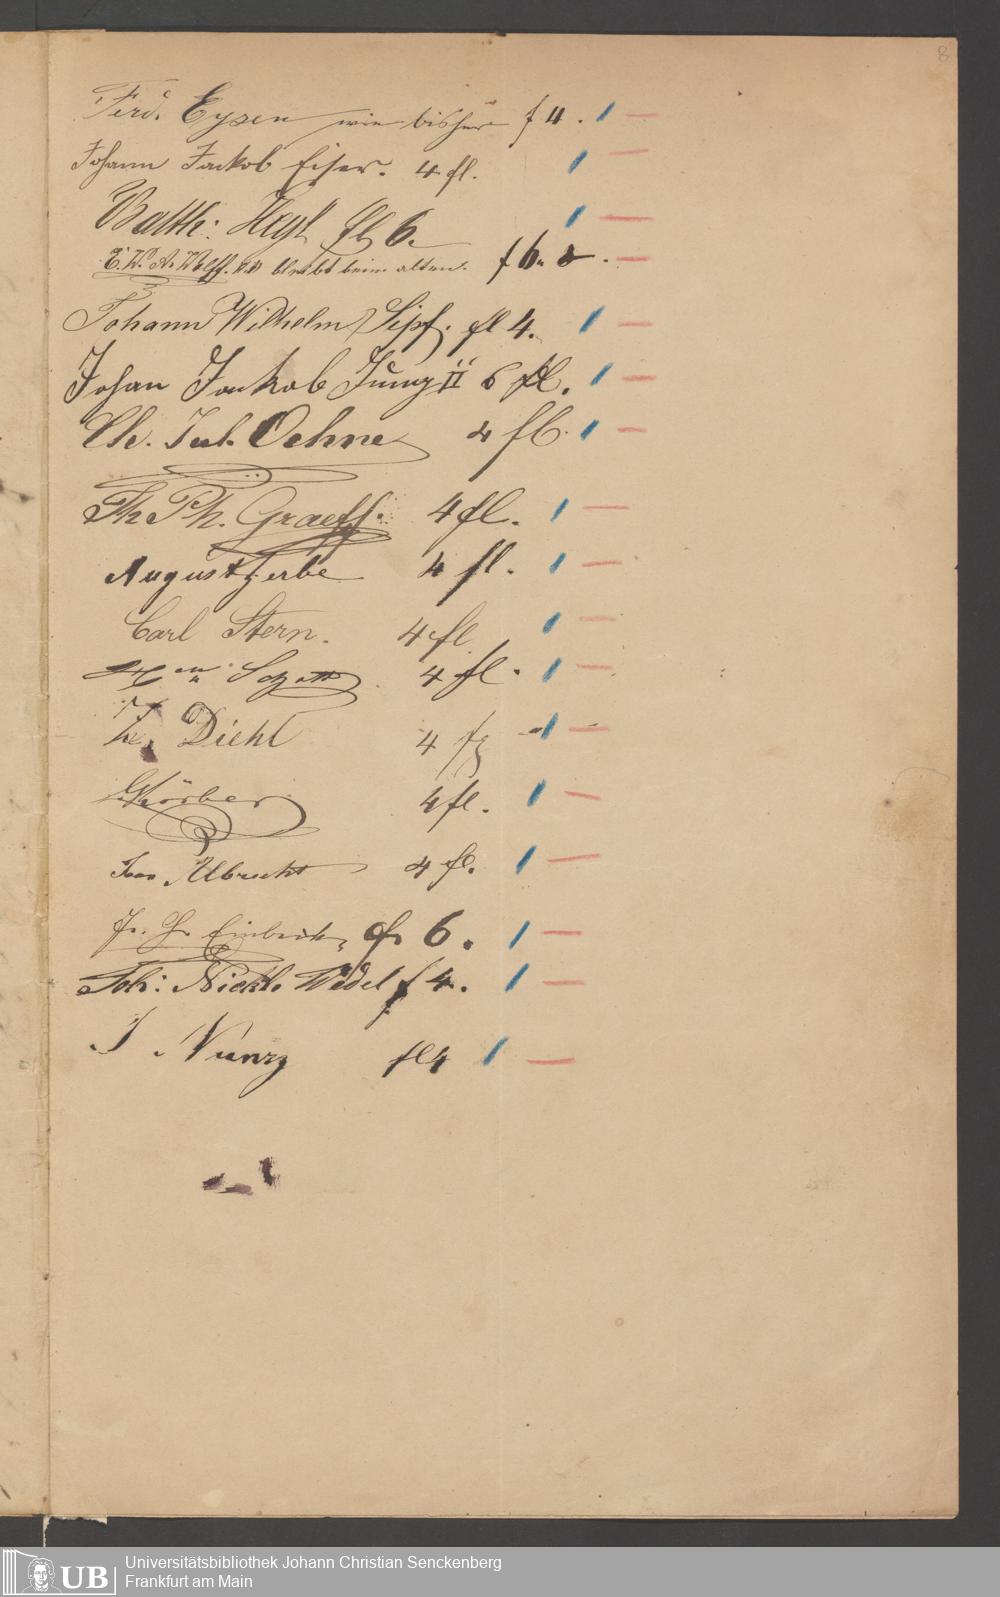 8
Ferd. Eysen wie bisher f 4.
Johann Jackob Eiser. 4 fl.
Balth: Heyl fl 6.
E. W. A. Wolff. bleibt beim alten. f 6.
Johann Wilhelm Sipf. fl 4.
Johan Jackob Jung II 6 fl.
Ch. Jul. Oehne 4 fl.
Fh. Ph. Graeff. 4 fl.
August Zerbe 4 fl.
Carl Stern. 4 fl
4 fl.
Diehl 4
Körber 4 fl.
Albrecht 4 fl.
Fr. 6.
Joh: Nickl. Wedel f 4.
J. fl 4
Universitätsbibliothek Johann Christian Senckenberg
Frankfurt am Main
UB